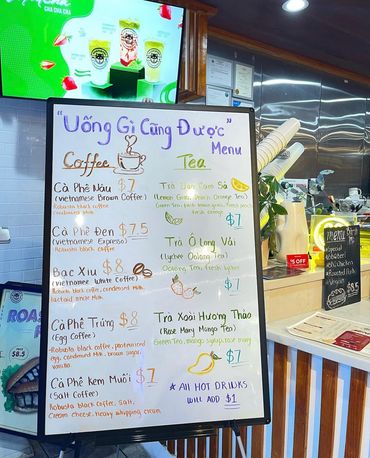 CHA CHA CHA
"Uống Gì Cũng Được"
Menu
Coffee
Cà Phê Nâu $7
(Vietnamese Brown Coffee)
Robusta black coffee
Cà Phê Đen $7.5
(Vietnamese Espresso)
Robusta black coffee
Bạc Xỉu $8
(Vietnamese White Coffee)
Robusta black coffee, condensed milk,
Cà Phê Trứng $8
(Egg Coffee)
Robusta black coffee,
condensed milk, brown sugar,
vanilla
Cà Phê Kem Muối $7
(Salt Coffee)
Robusta black coffee, salt,
cream cheese, heavy whipping cream
Tea
Trà Đào Cam Sả
(Lemon Grass Peach Orange Tea)
$7
Trà Ô Long Vải
(Lychee Oolong Tea)
Oolong Tea, fresh lychee
$7
Trà Xoài Hương Thảo
(Rose Mary Mango Tea)
Green Tea, mango syrup, rose mary
$7
* All HOT DRINKS
will ADD $1
menu
% OFF
ROAS
$8.5